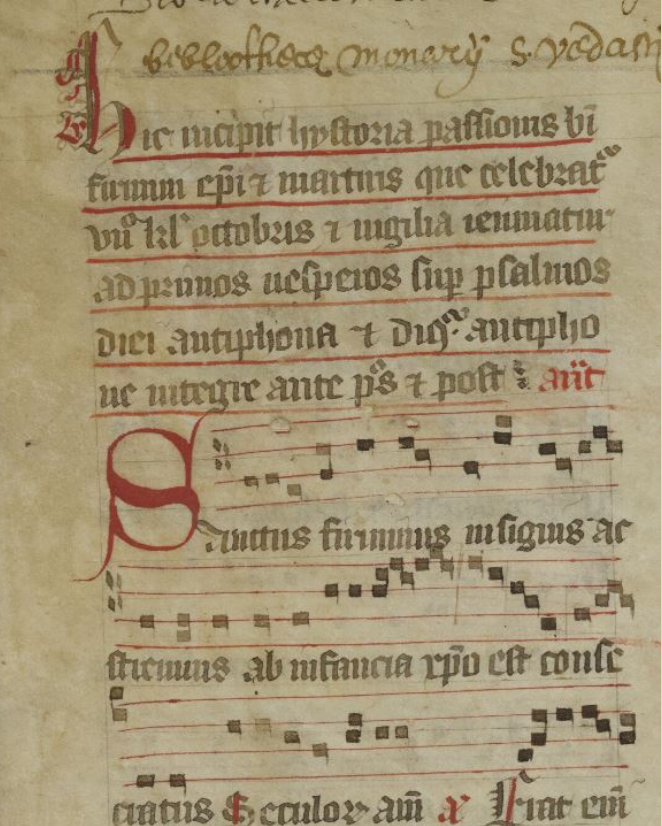 bibliothecæ monarij S. Vedasti
hic incipit hystoria passionis bi
firmini epi ⁊ martiris que celebrat
viiº kl' octobris ⁊ uigilia ieiunatur
ad primos uesperos sup psalmos
diei antiphona ⁊ dicᵗ antipho
ne integre ante ps ⁊ post añt
Sanctus firminus insignis ac
strenuus ab infancia xpo est conse
cratus Seculoꝝ am Erat eni